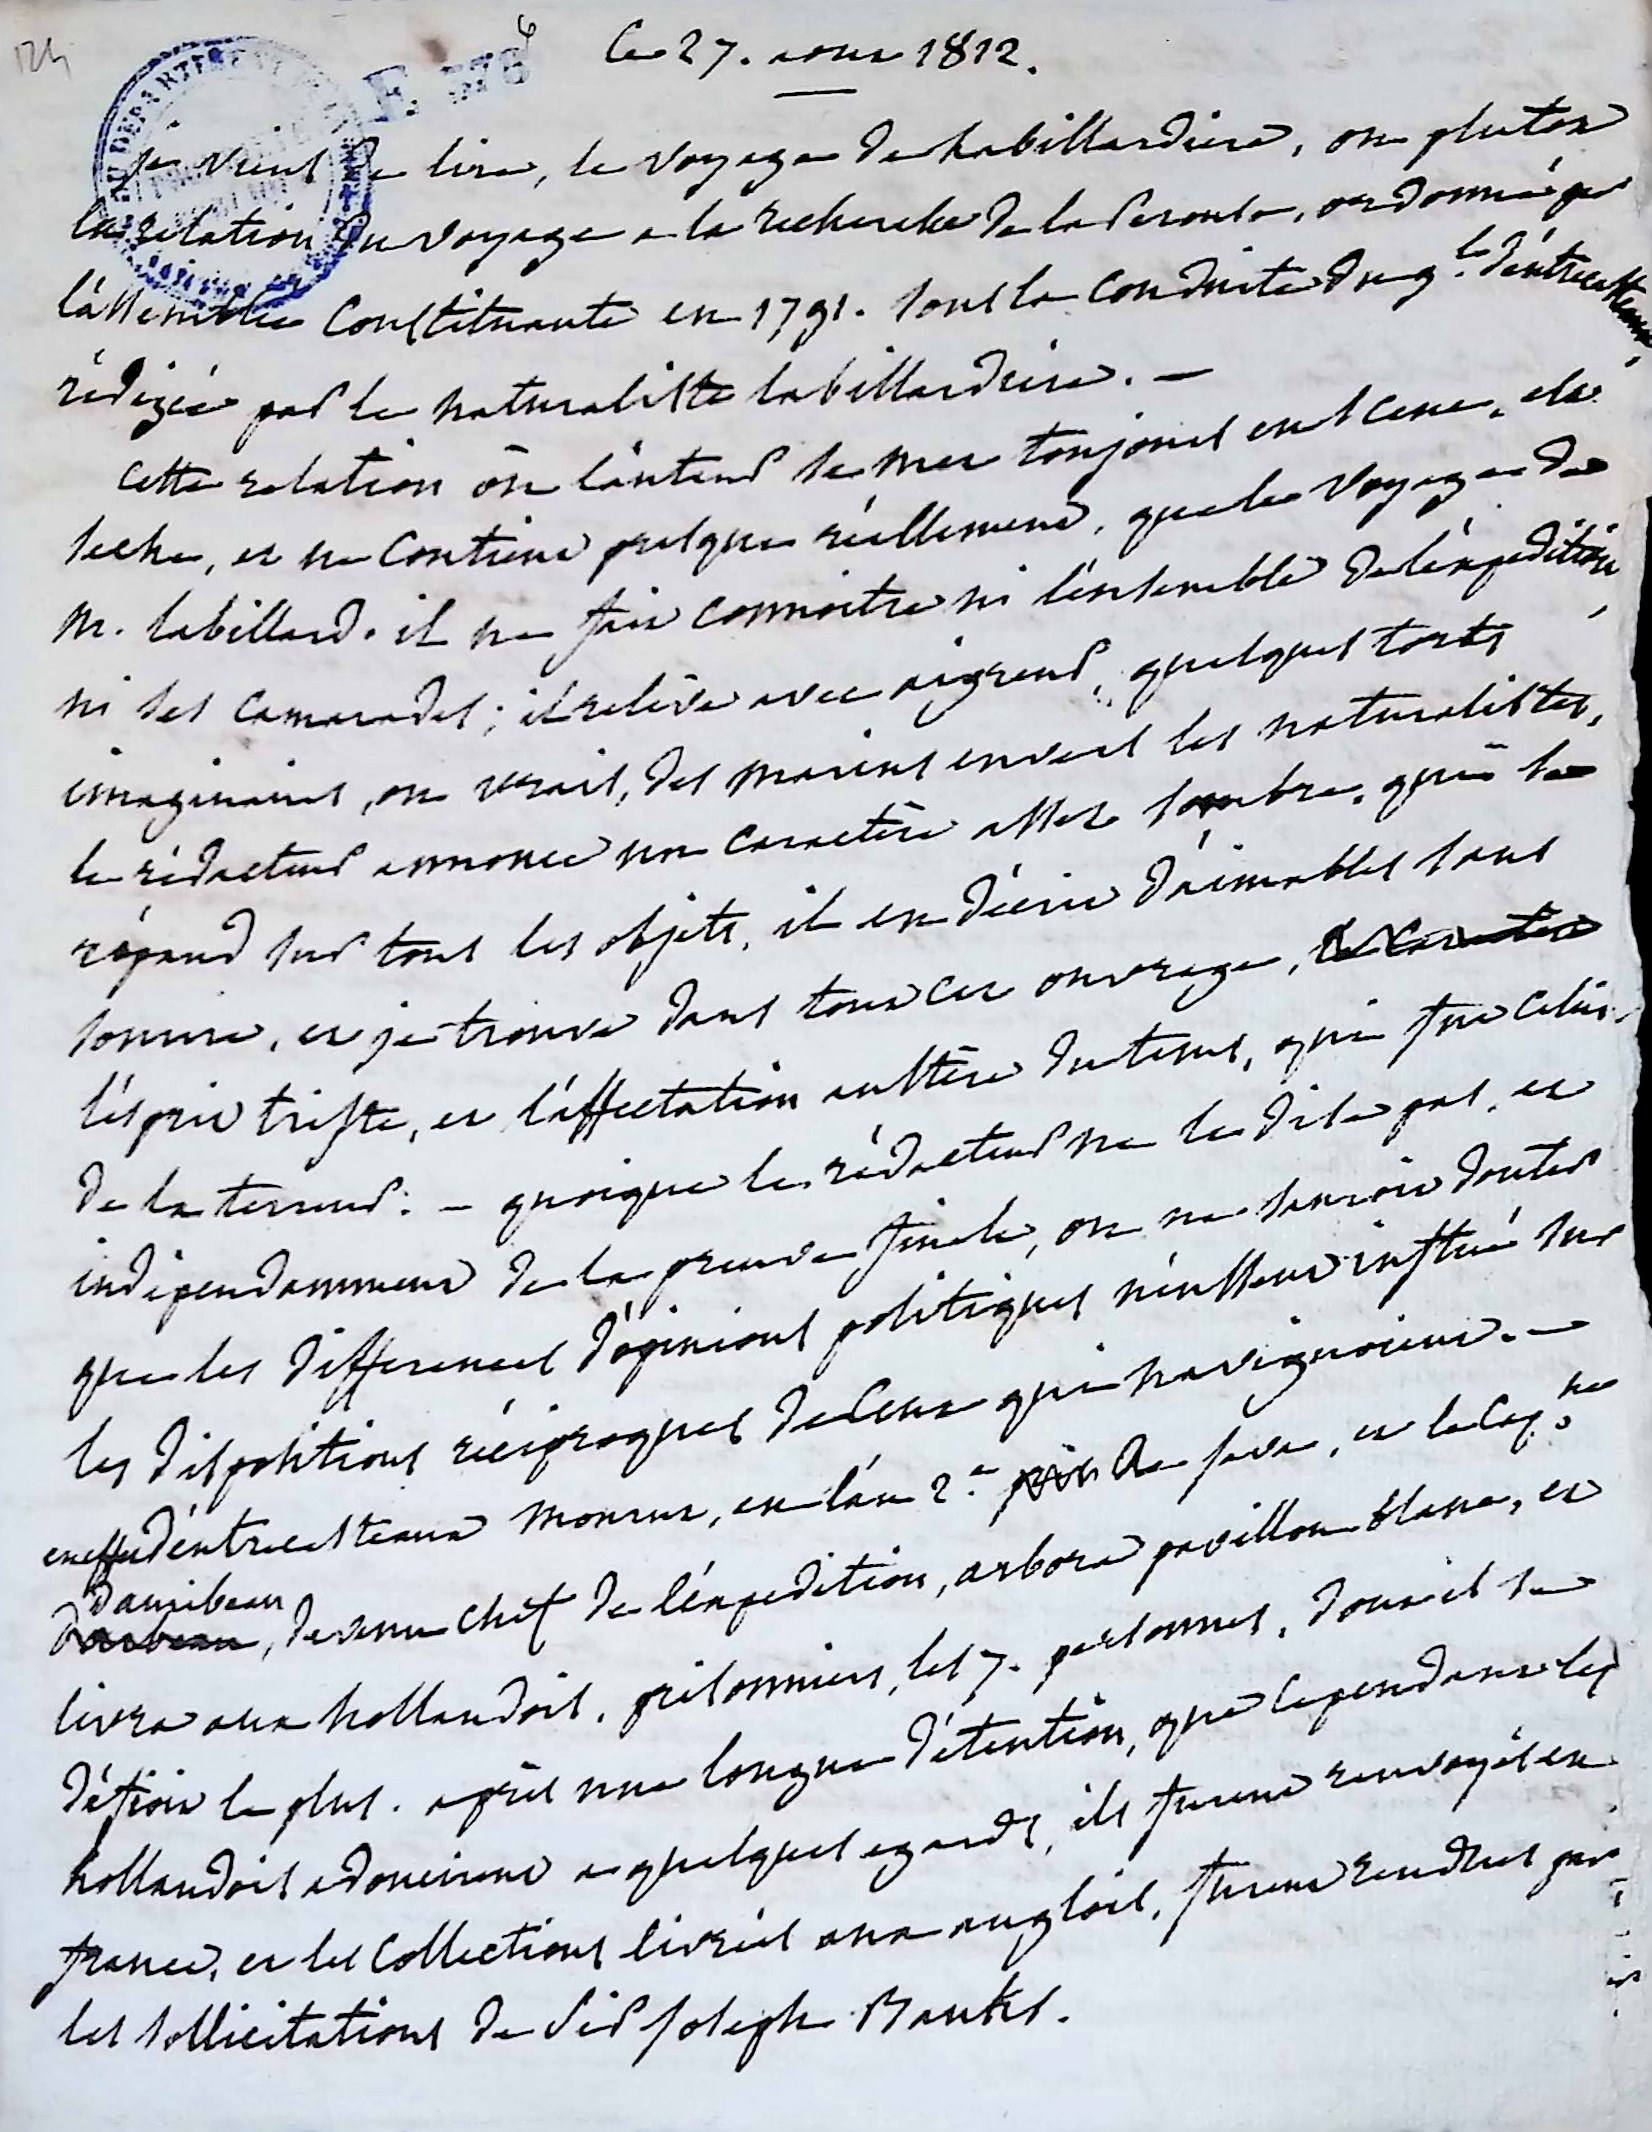 124
6
E 378
Ce 27. aout 1812.
je viens de lire, le voyage de Labillardiere, ou plutot
la relation du voyage a la recherche de la Perouse, ordonné par
l'assemblée Constituante en 1791. sous la conduite du gl. d'entrecasteaux,
rédigée par le naturaliste labillardiere. —
cette relation ou l'on entend la mer toujours en scene, est
seche, et ne contient presque réellement, que le voyage de
M. labillard. il ne fait connoitre ni l'ensemble de l'expedition,
ni ses camarades; il releve avec aigreur, quelques torts
imaginaires, ou vrais, des marins envers les naturalistes,
le rédacteur annonce un caractère assez sombre, qui se
répand sur tous les objets, il en décrit d'aimables sans
sourire, et je trouve dans tout cet ouvrage, le caractere
l'esprit triste, et l'affectation austère du tems, qui fut celui
de la terreur. — quoique le rédacteur ne le dise pas, et
indépendamment de la preuve finale, on ne sauroit douter
que les differences d'opinions politiques n'eussent influé sur
les dispositions réciproques de ceux qui navigueoient. —
en effet d'entrecasteaux mourut, en l'an 2e. Java, et le cap.ne
Dauribeau
, devenu chef de l'expedition, arbora pavillon blanc, et
livra aux hollandois, prisonniers, les 7. personnes, dont il se
défioit le plus. après une longue détention, que cependant les
hollandois adoucirent a quelques egards, ils furent renvoyés en
france, et les collections livrées aux anglois, furent rendues par
les sollicitations de Sir Joseph Banks.